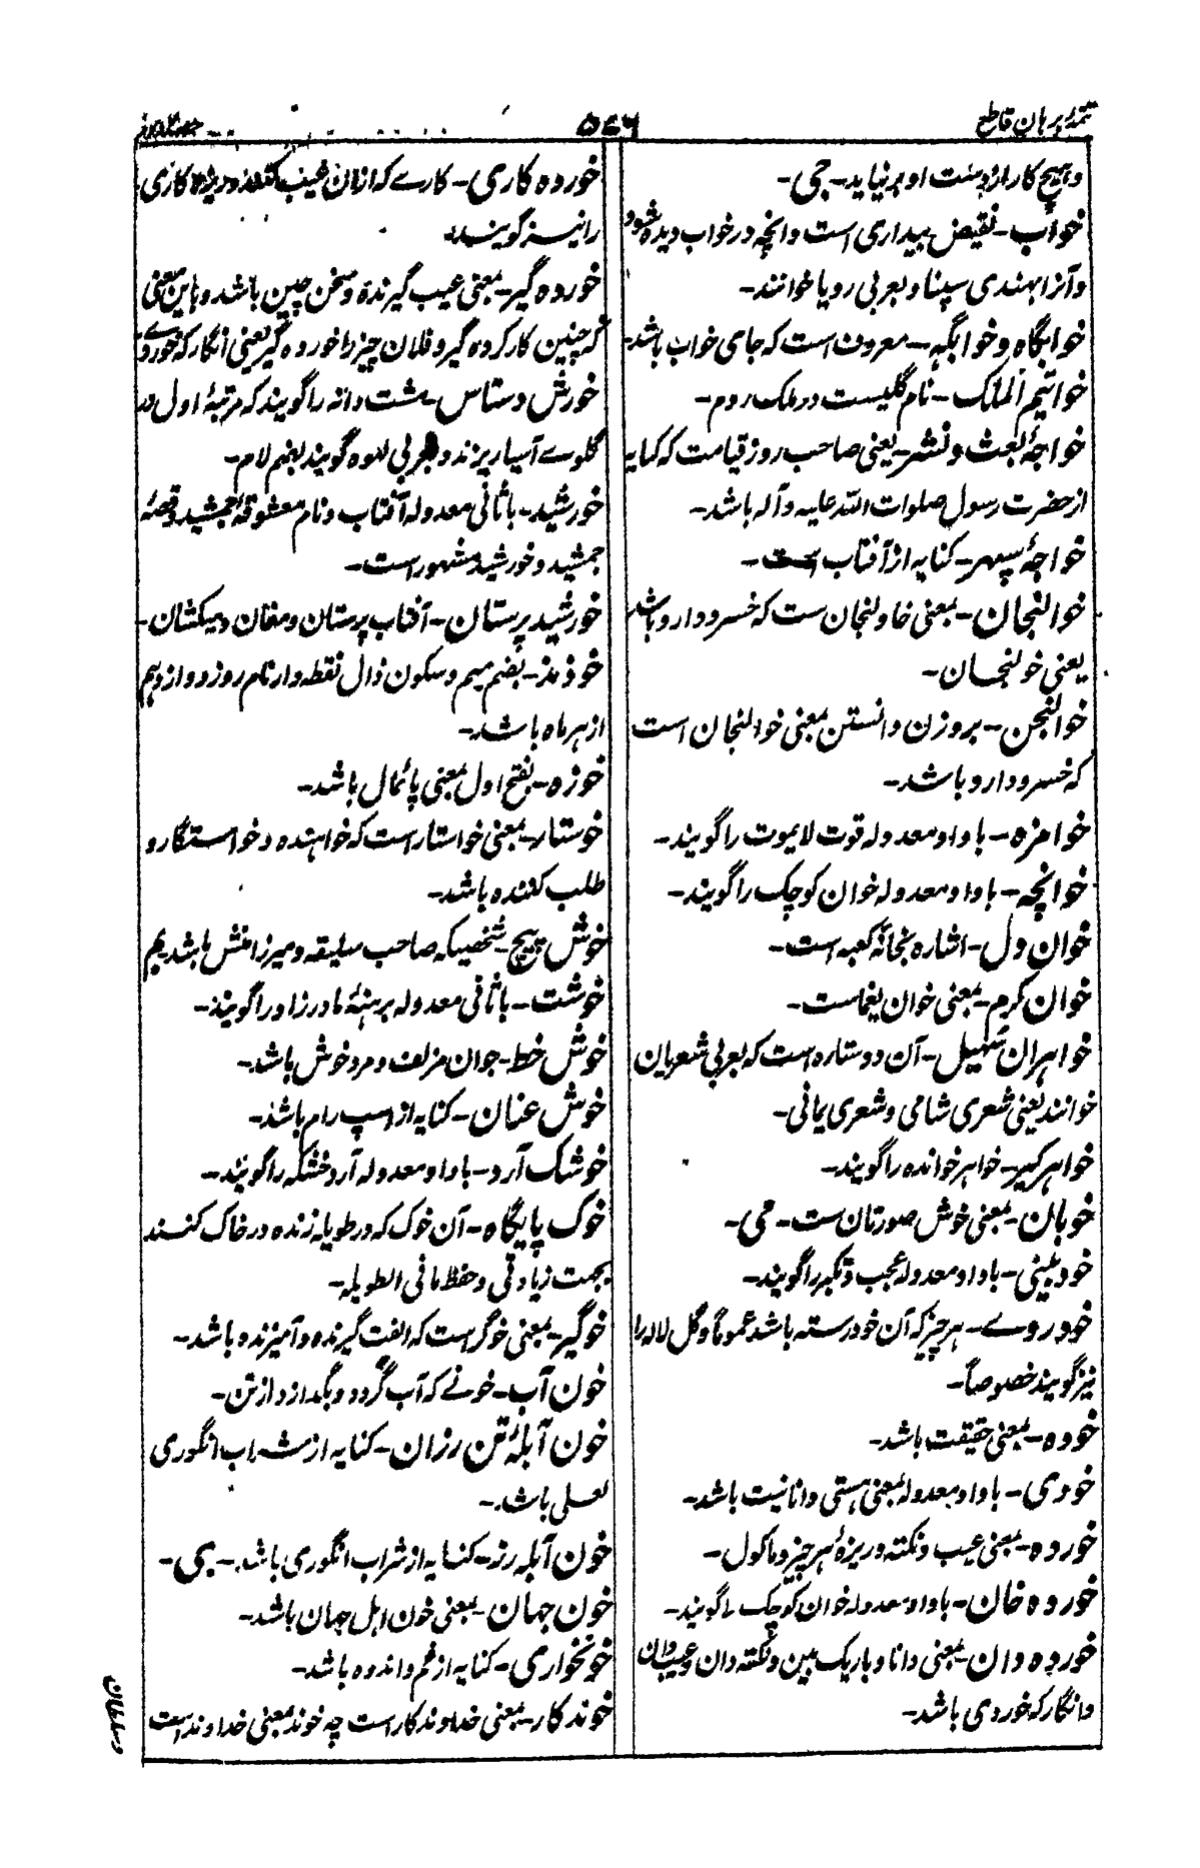 تتمهٔ برهان قاطع
۵۴۶
وهیچ کار از دست او بر نیاید - جی -
خواب - نقیض بیداری است وانچه در خواب دیده شود
وآنرا بهندی سپنا وبعربی رویا خوانند -
خوابگاه وخوابگه - معروف است که جای خواب باشد -
خواتیم الملک - نام گلیست در ملک روم -
خواجهٔ بعث ونشر - یعنی صاحب روز قیامت که کنایه
از حضرت رسول صلوات الله علیه وآله باشد -
خواجهٔ سپهر - کنایه از آفتاب است -
خوالنجان - بمعنی خاولنجان ست که خسرودارو باشد
یعنی خولنجان -
خوالنجن - بروزن وانستن بمعنی خوالنجان است
که خسرودارو باشد -
خوامزه - با واو معدوله قوت لایموت را گویند -
خوانچه - با واو معدوله خوان کوچک را گویند -
خوان دل - اشاره بخانهٔ کعبه است -
خوان کرم - بمعنی خوان یغماست -
خواهران سهیل - آن دو ستاره است که بعربی شعریان
خوانند یعنی شعری شامی وشعری یمانی -
خواهرگیر - خواهر خوانده را گویند -
خوبان - بمعنی خوش صورتان ست - می -
خودبینی - با واو معدوله عجب وتکبر را گویند -
خودروے - هر چیز که آن خود رسته باشد عموماً وگل لاله را
نیز گویند خصوصاً -
خوده - بمعنی حقیقت باشد -
خودی - با واو معدوله بمعنی هستی وانانیت باشد -
خورده - بمعنی عیب ونکته وریزهٔ هر چیز وماکول -
خورده خان - با واو معدوله خوان کوچک را گویند -
خورده دان - بمعنی دانا وباریک بین ونکته دان وعیب دان
وانگار که خوردی باشد -
خورده کاری - کارے که ازان عیب وریزه کاری
را نیز گویند
خورده گیر - بمعنی عیب گیرنده وسخن چین باشد وباین معنی
که چنین کار کرده گیر وفلان چیز را خورده گیر یعنی انگار که خوردے
خورش دستاس - مشت دانه را گویند که مرتبهٔ اول در
گلوے آسیا ریزند وبعربی لهوه گویند بضم لام -
خورشید - با ثانی معدوله آفتاب ونام معشوقهٔ جمشید وقصهٔ
جمشید وخورشید مشهور است -
خورشید پرستان - آفتاب پرستان ومغان ومیکشان -
خوذمذ - بضم میم وسکون ذال نقطه دار نام روز دوازدهم
از هر ماه باشد -
خوزه - بفتح اول بمعنی پائمال باشد -
خوستار - بمعنی خواستار است که خواهنده وخواستگار و
طلب کننده باشد -
خوش پیچ - شخصیکه صاحب سلیقه ومیرزا منش باشد
خوشت - با ثانی معدوله برهنهٔ مادرزاد را گویند -
خوش خط - جوان مزلف ومرد خوش باشد -
خوش عنان - کنایه از اسپ رام باشد -
خوشک آرد - با واو معدوله آرد خشکه را گویند -
خوک پایگاه - آن خوک که در طویله زنده در خاک کنند
بجهت زیادتی وحفظ مافی الطویله -
خوگیر - بمعنی خوگر است که الفت گیرنده وآمیزنده باشد -
خون آب - خونے که آب گردد وبگدازد از تن -
خون آبلهٔ تن رزان - کنایه از شراب انگوری
لعلی باشد -
خون آبله رز - کنایه از شراب انگوری باشد - بی -
خون جهان - بمعنی خون اهل جهان باشد -
خونخواری - کنایه از غم واندوه باشد -
خوندکار - بمعنی خداوندکار است چه خوند بمعنی خداوند است
وسلطان